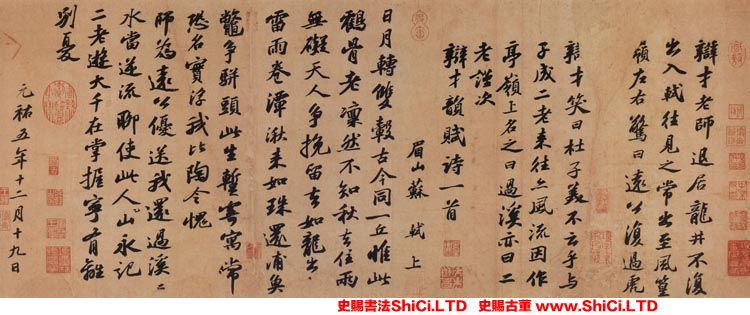 辯才老師退居龍井不復
出入軾往見之常出至風篁
嶺左右驚曰遠公復過虎
辯才笑曰杜子美不云乎與
子成二老來往亦風流因作
亭嶺上名之曰過溪亦曰二
老謹次
辯才韻賦詩一首
眉山蘇 軾上
日月轉雙轂古今同一丘惟此
鶴骨老凜然不知秋去住兩
無礙天人爭挽留去如龍出
雷雨卷潭湫來如珠還浦魚
鼈爭駢頭此生暫寄寓常
恐名實浮我比陶令愧
師為遠公優送我還過溪〻
水當逆流聊使此人山永記
二老遊大千在掌握寧有離
別憂
元祐五年十二月十九日
史賜書法ShiCi.LTD 史賜古董 www.ShiCi.LTD